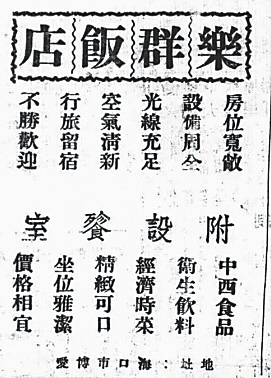 樂群飯店
房位寬敞
設備周全
光線充足
空氣清新
行旅留宿
不勝歡迎
附設餐室
中西食品
衛生飲料
經濟時菜
精緻可口
坐位雅潔
價格相宜
地址：海口市博愛